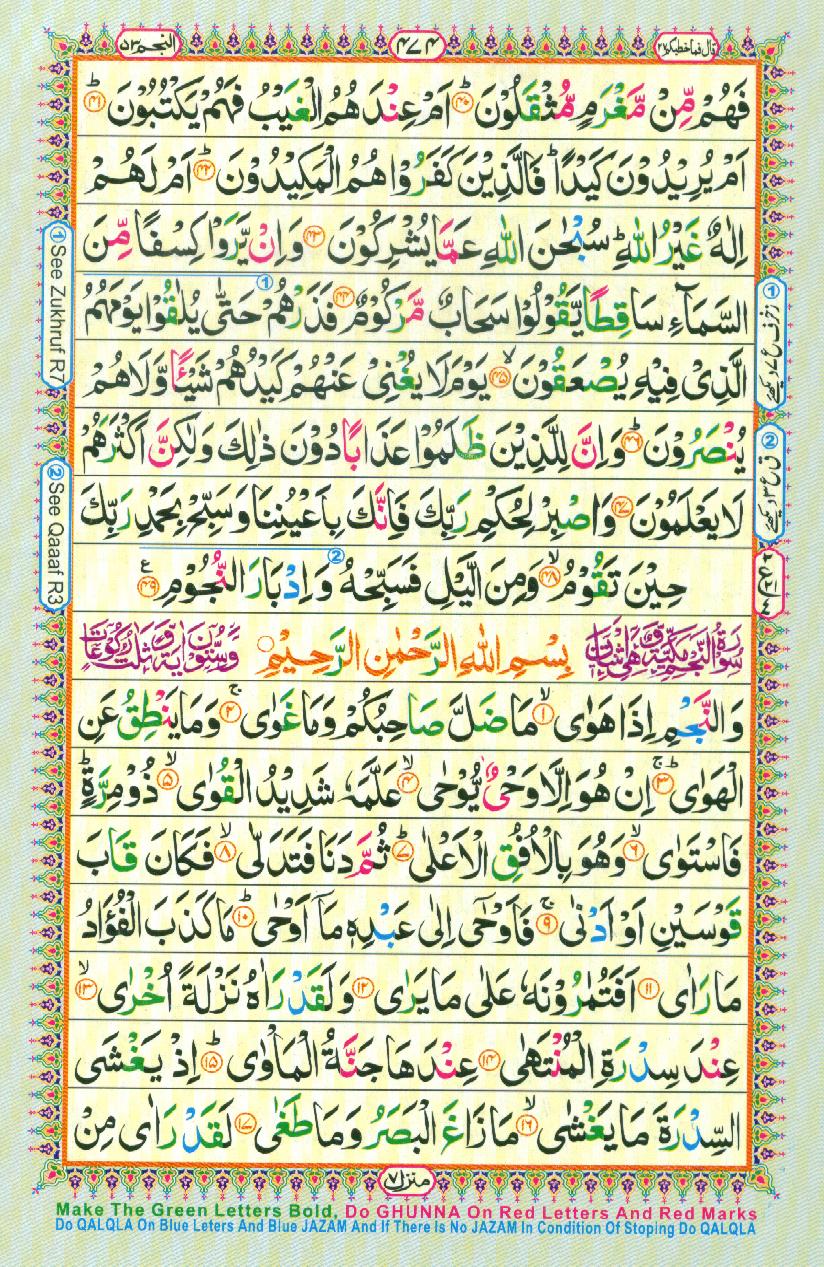 قال فما خطبکم ۲۷
۴۷۴
النجم ۵۳
فَهُمْ مِّنْ مَّغْرَمٍ مُّثْقَلُوْنَ ؕ۴۰ اَمْ عِنْدَهُمُ الْغَيْبُ فَهُمْ يَكْتُبُوْنَ ؕ۴۱
اَمْ يُرِيْدُوْنَ كَيْدًا ؕ فَالَّذِيْنَ كَفَرُوْا هُمُ الْمَكِيْدُوْنَ ؕ۴۲ اَمْ لَهُمْ
اِلٰهٌ غَيْرُ اللّٰهِ ؕ سُبْحٰنَ اللّٰهِ عَمَّا يُشْرِكُوْنَ ۴۳ وَاِنْ يَّرَوْا كِسْفًا مِّنَ
السَّمَآءِ سَاقِطًا يَّقُوْلُوْا سَحَابٌ مَّرْكُوْمٌ ۴۴ فَذَرْهُمْ ① حَتّٰى يُلٰقُوْا يَوْمَهُمُ
الَّذِىْ فِيْهِ يُصْعَقُوْنَ ۙ۴۵ يَوْمَ لَا يُغْنِىْ عَنْهُمْ كَيْدُهُمْ شَيْـًٔا وَّلَا هُمْ
يُنْصَرُوْنَ ؕ۴۶ وَاِنَّ لِلَّذِيْنَ ظَلَمُوْا عَذَابًا دُوْنَ ذٰلِكَ وَلٰكِنَّ اَكْثَرَهُمْ
لَا يَعْلَمُوْنَ ۴۷ وَاصْبِرْ لِحُكْمِ رَبِّكَ فَاِنَّكَ بِاَعْيُنِنَا وَسَبِّحْ بِحَمْدِ رَبِّكَ
حِيْنَ تَقُوْمُ ۙ۴۸ وَمِنَ الَّيْلِ فَسَبِّحْهُ ② وَاِدْبَارَ النُّجُوْمِ ۴۹ ع
سُوْرَةُ النَّجْمِ مَكِّيَّةٌ وَّهِىَ اثْنَتَانِ
بِسْمِ اللّٰهِ الرَّحْمٰنِ الرَّحِيْمِ
وَّسِتُّوْنَ اٰيَةً وَّثَلٰثُ رُكُوْعَاتٍ
وَالنَّجْمِ اِذَا هَوٰى ۙ۱ مَا ضَلَّ صَاحِبُكُمْ وَمَا غَوٰى ۚ۲ وَمَا يَنْطِقُ عَنِ
الْهَوٰى ؕ۳ اِنْ هُوَ اِلَّا وَحْىٌ يُّوْحٰى ۙ۴ عَلَّمَهٗ شَدِيْدُ الْقُوٰى ۙ۵ ذُوْ مِرَّةٍ ؕ
فَاسْتَوٰى ۙ۶ وَهُوَ بِالْاُفُقِ الْاَعْلٰى ؕ۷ ثُمَّ دَنَا فَتَدَلّٰى ۙ۸ فَكَانَ قَابَ
قَوْسَيْنِ اَوْ اَدْنٰى ۚ۹ فَاَوْحٰٓى اِلٰى عَبْدِهٖ مَاۤ اَوْحٰى ؕ۱۰ مَا كَذَبَ الْفُؤَادُ
مَا رَاٰى ۱۱ اَفَتُمٰرُوْنَهٗ عَلٰى مَا يَرٰى ۱۲ وَلَقَدْ رَاٰهُ نَزْلَةً اُخْرٰى ۙ۱۳
عِنْدَ سِدْرَةِ الْمُنْتَهٰى ۱۴ عِنْدَهَا جَنَّةُ الْمَاْوٰى ؕ۱۵ اِذْ يَغْشَى
السِّدْرَةَ مَا يَغْشٰى ۙ۱۶ مَا زَاغَ الْبَصَرُ وَمَا طَغٰى ۱۷ لَقَدْ رَاٰى مِنْ
① See Zukhruf R7
② See Qaaaf R3
منزل ۷
Make The Green Letters Bold, Do GHUNNA On Red Letters And Red Marks
Do QALQLA On Blue Leters And Blue JAZAM And If There Is No JAZAM In Condition Of Stoping Do QALQLA